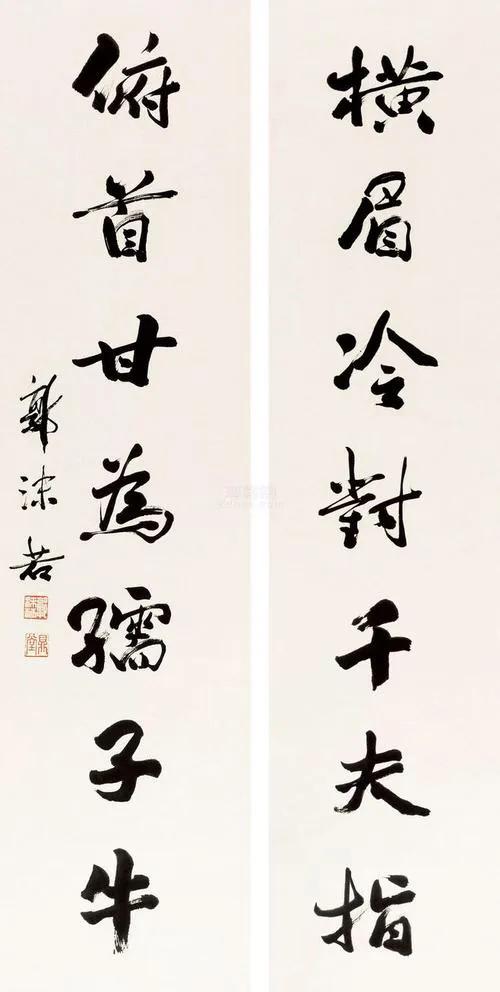 橫眉冷對千夫指
俯首甘為孺子牛
郭沫若